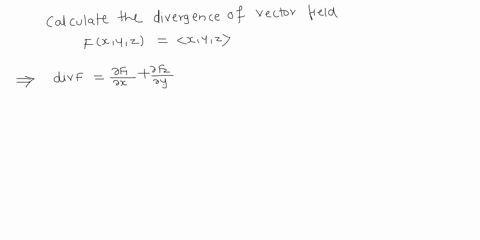 Calculate the divergence of vector field
F(x,y,z) = <x,y,z>
⇒ divF = ∂F₁/∂x + ∂F₂/∂y